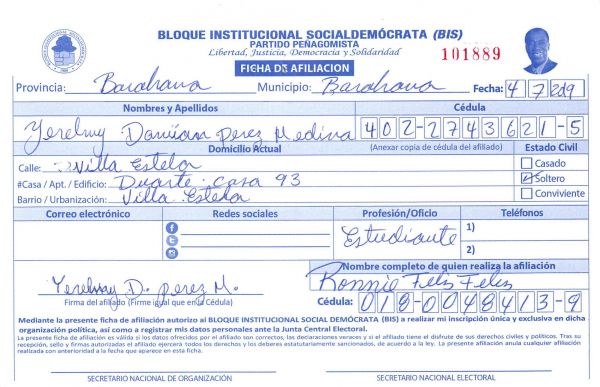 BLOQUE INSTITUCIONAL SOCIALDEMÓCRATA (BIS)
PARTIDO PEÑAGOMISTA
Libertad, Justicia, Democracia y Solidaridad
101889
FICHA DE AFILIACION
Provincia: Barahona Municipio: Barahona Fecha: 4 7 2019
Nombres y Apellidos Cédula
Yerelmy Damian Perez Medina 402-2743621-5
Domicilio Actual (Anexar copia de cédula del afiliado) Estado Civil
Calle: Villa Estela Casado
#Casa / Apt. / Edificio: Duarte casa 93 Soltero
Barrio / Urbanización: Villa Estela Conviviente
Correo electrónico Redes sociales Profesión/Oficio Teléfonos
Estudiante 1)
2)
Nombre completo de quien realiza la afiliación
Yerelmy D. Perez M. Ronnie Feliz Feliz
Firma del afiliado (Firme igual que en la Cédula) Cédula: 018-0048413-9
Mediante la presente ficha de afiliación autorizo al BLOQUE INSTITUCIONAL SOCIAL DEMÓCRATA (BIS) a realizar mi inscripción única y exclusiva en dicha
organización política, así como a registrar mis datos personales ante la Junta Central Electoral.
La presente ficha de afiliación es válida si los datos ofrecidos por el afiliado son correctos, las declaraciones veraces y si el afiliado tiene el disfrute de sus derechos civiles y políticos. Tras su
recepción, sello y firmas autorizadas el afiliado ejercerá todos los derechos y los deberes estatutariamente sancionados, de acuerdo a la ley. La presente afiliación anula cualquier afiliación
realizada con anterioridad a la fecha que aparece en esta ficha.
SECRETARIO NACIONAL DE ORGANIZACIÓN SECRETARIO NACIONAL ELECTORAL